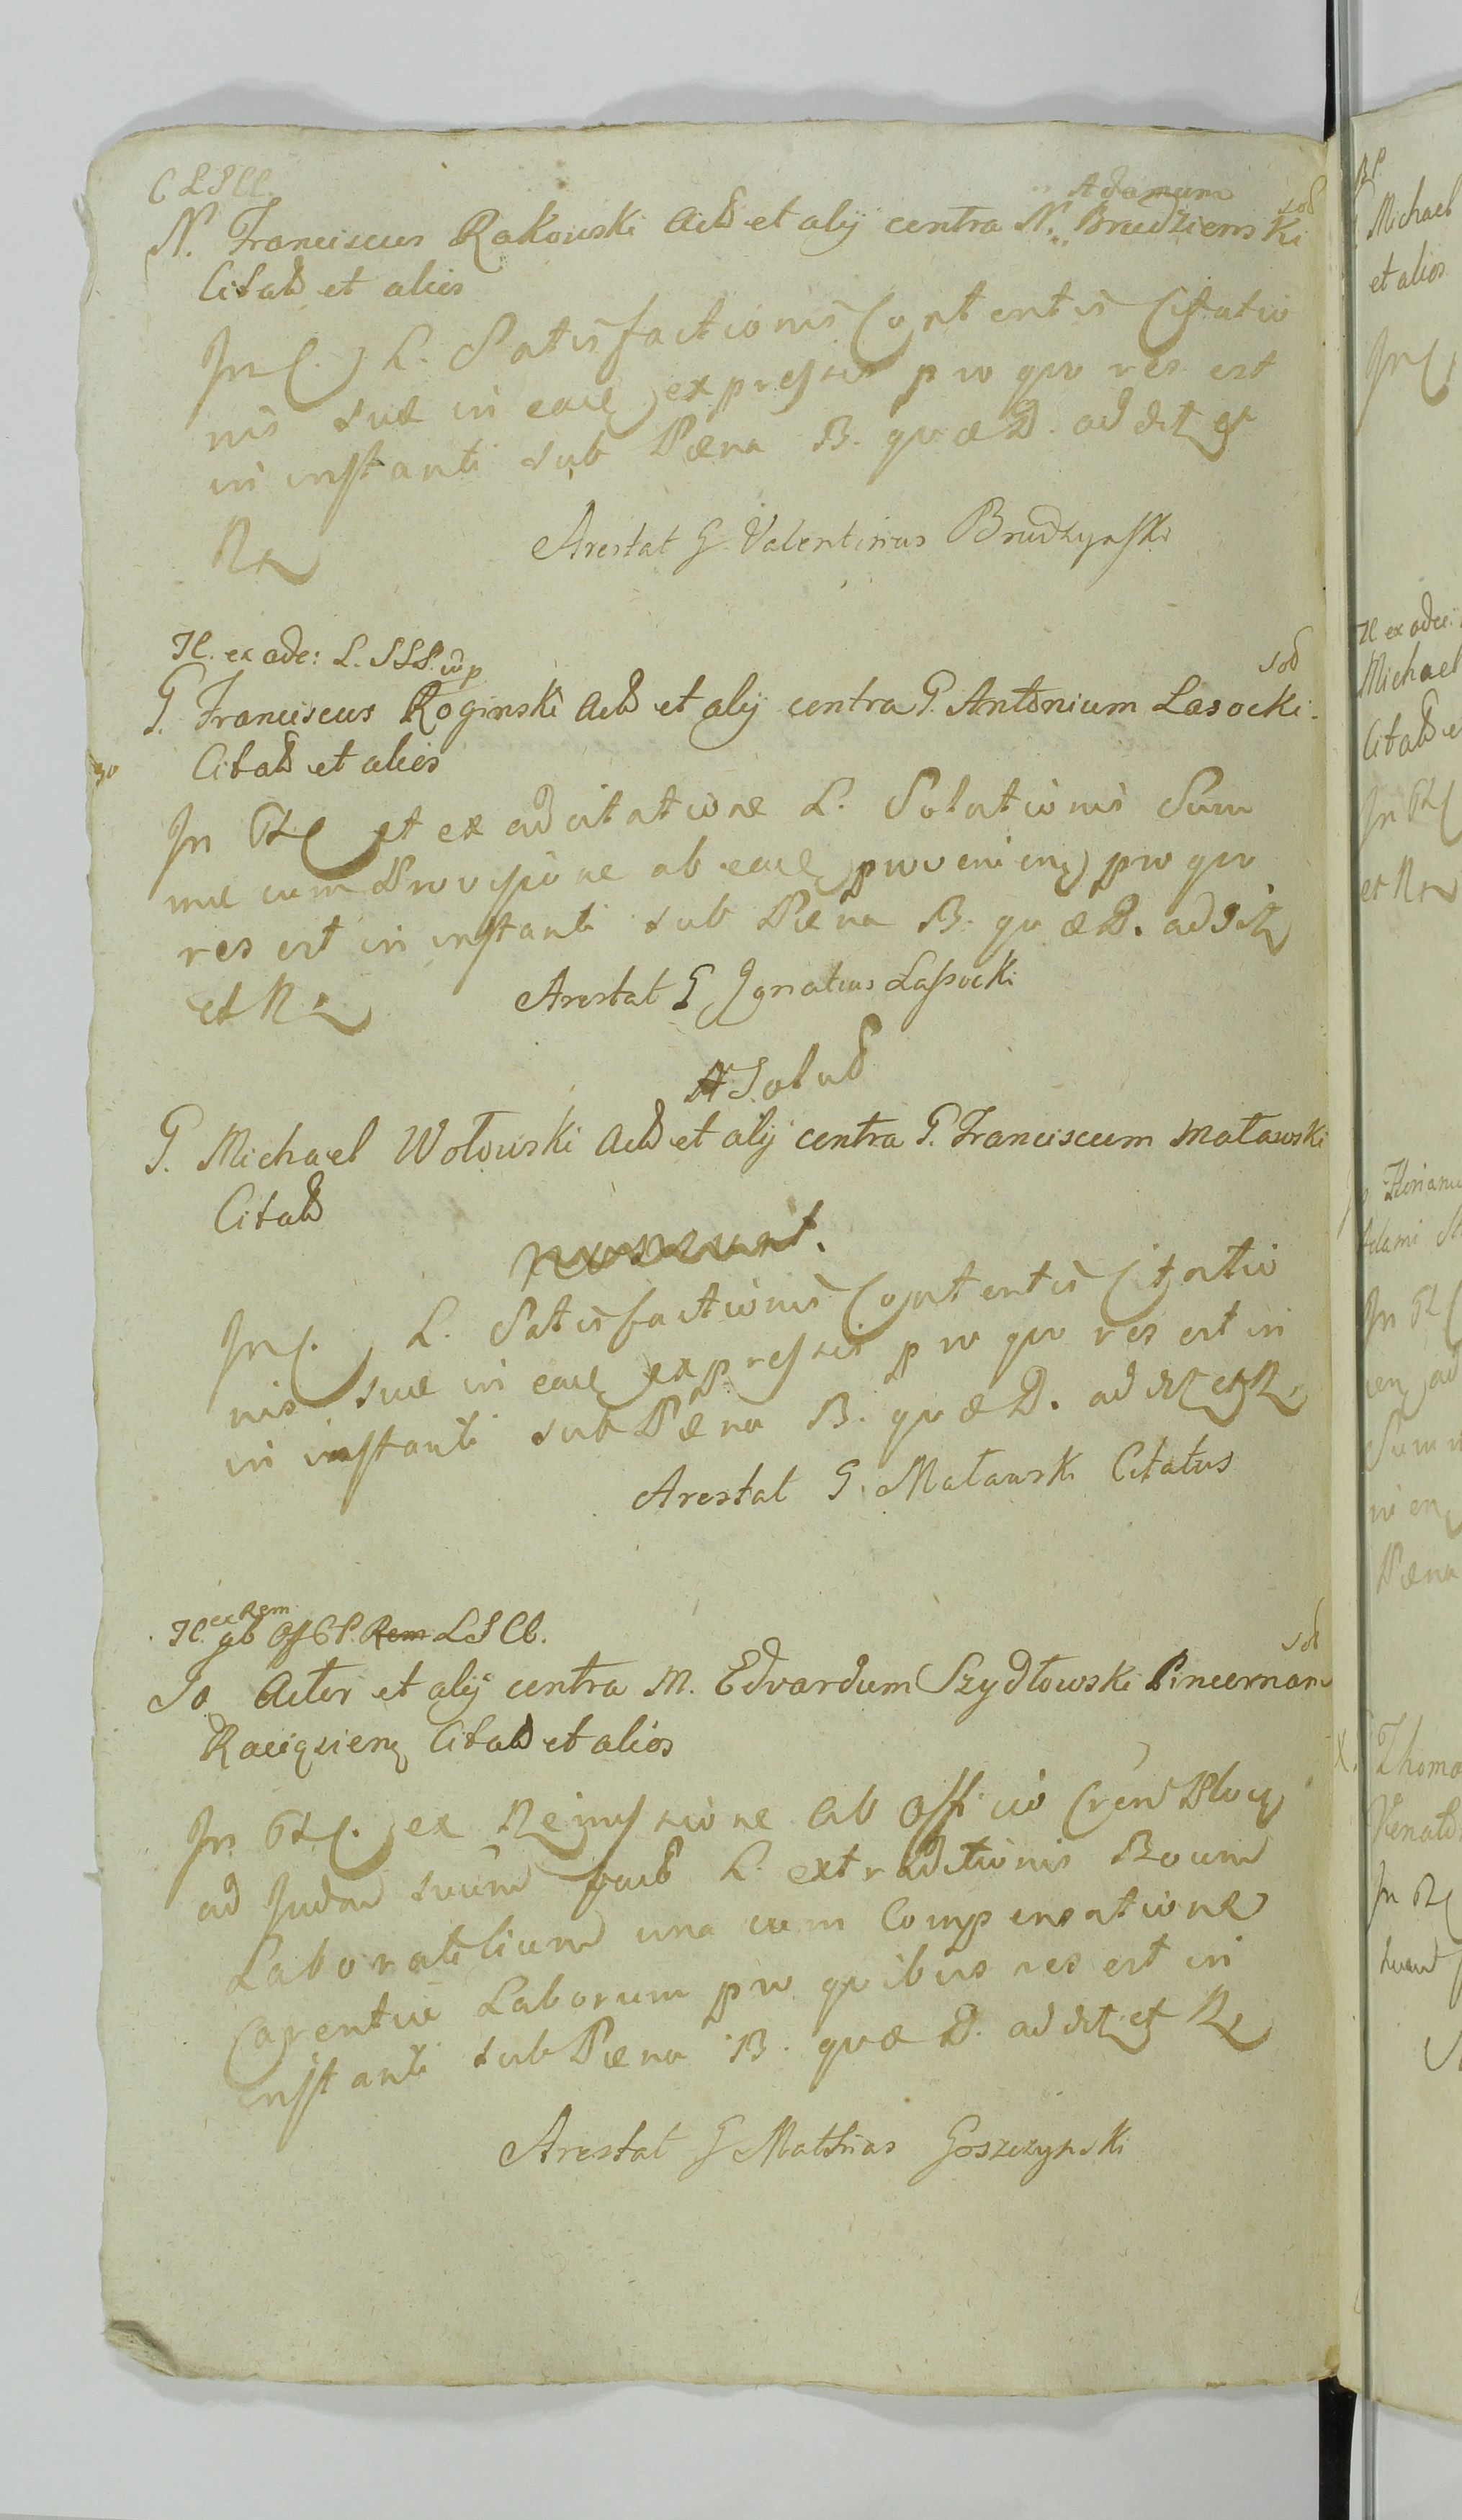 C L S Cl.
Adamum sol
N. Franciscus Rakowski Actd et alij contra N. Brudzienski
Citatd et alios
In C. L. Satisfactionis Contentis Citatio
nis suæ in eaq expressis pro quo res est
in instanti sub Pæna B. quæ D. addt et
Rx
Arestat G Valentinus Brudzynski
Il. ex adc: L. SSS. wp sol
G. Franciscus Roginski Actd et alij contra G. Antonium Lasocki
Citatd et alios
In C et ex adcitatione L. Solutionis Sum
mæ cum Provisione ab eaq provenieng pro quo
res est in instanti sub Pæna B. quæ D. addt
et Rx
Arestat G Ignatius Lassocki
Solud
G. Michael Wołowski Actd et alij contra G. Franciscum Matawski
Citatd
In C. L. Satisfactionis Contentis Citatio
nis suæ in eaq expressis pro quo res est in
in instanti sub Pæna B. quæ D. addt et Rx
Arestat G. Matawski Citatus
ex Rem
Il. gb Off C P. Rem L S Cl. sol
Jo Actor et alij contra M. Edvardum Szydłowski Pincernam
Raciązieng Citatd et alios
In C. ex Remissione ab Officio Cren Ploc
ad Judm suum L. extraditionis Boum
Laboratilium una cum Compensatione
Carentiæ Laborum pro quibus res est in
instanti sub Pæna B. quæ D. addt et Rx
Arestat G Mathias Goszczynski
Michael
et alios
In C
Il ex adcc:
Michael
Citatd e
In C
et Rx
Florianu
Adami
In C
ad
Sum
nieng
Pæna
Thoma
Venato
In C